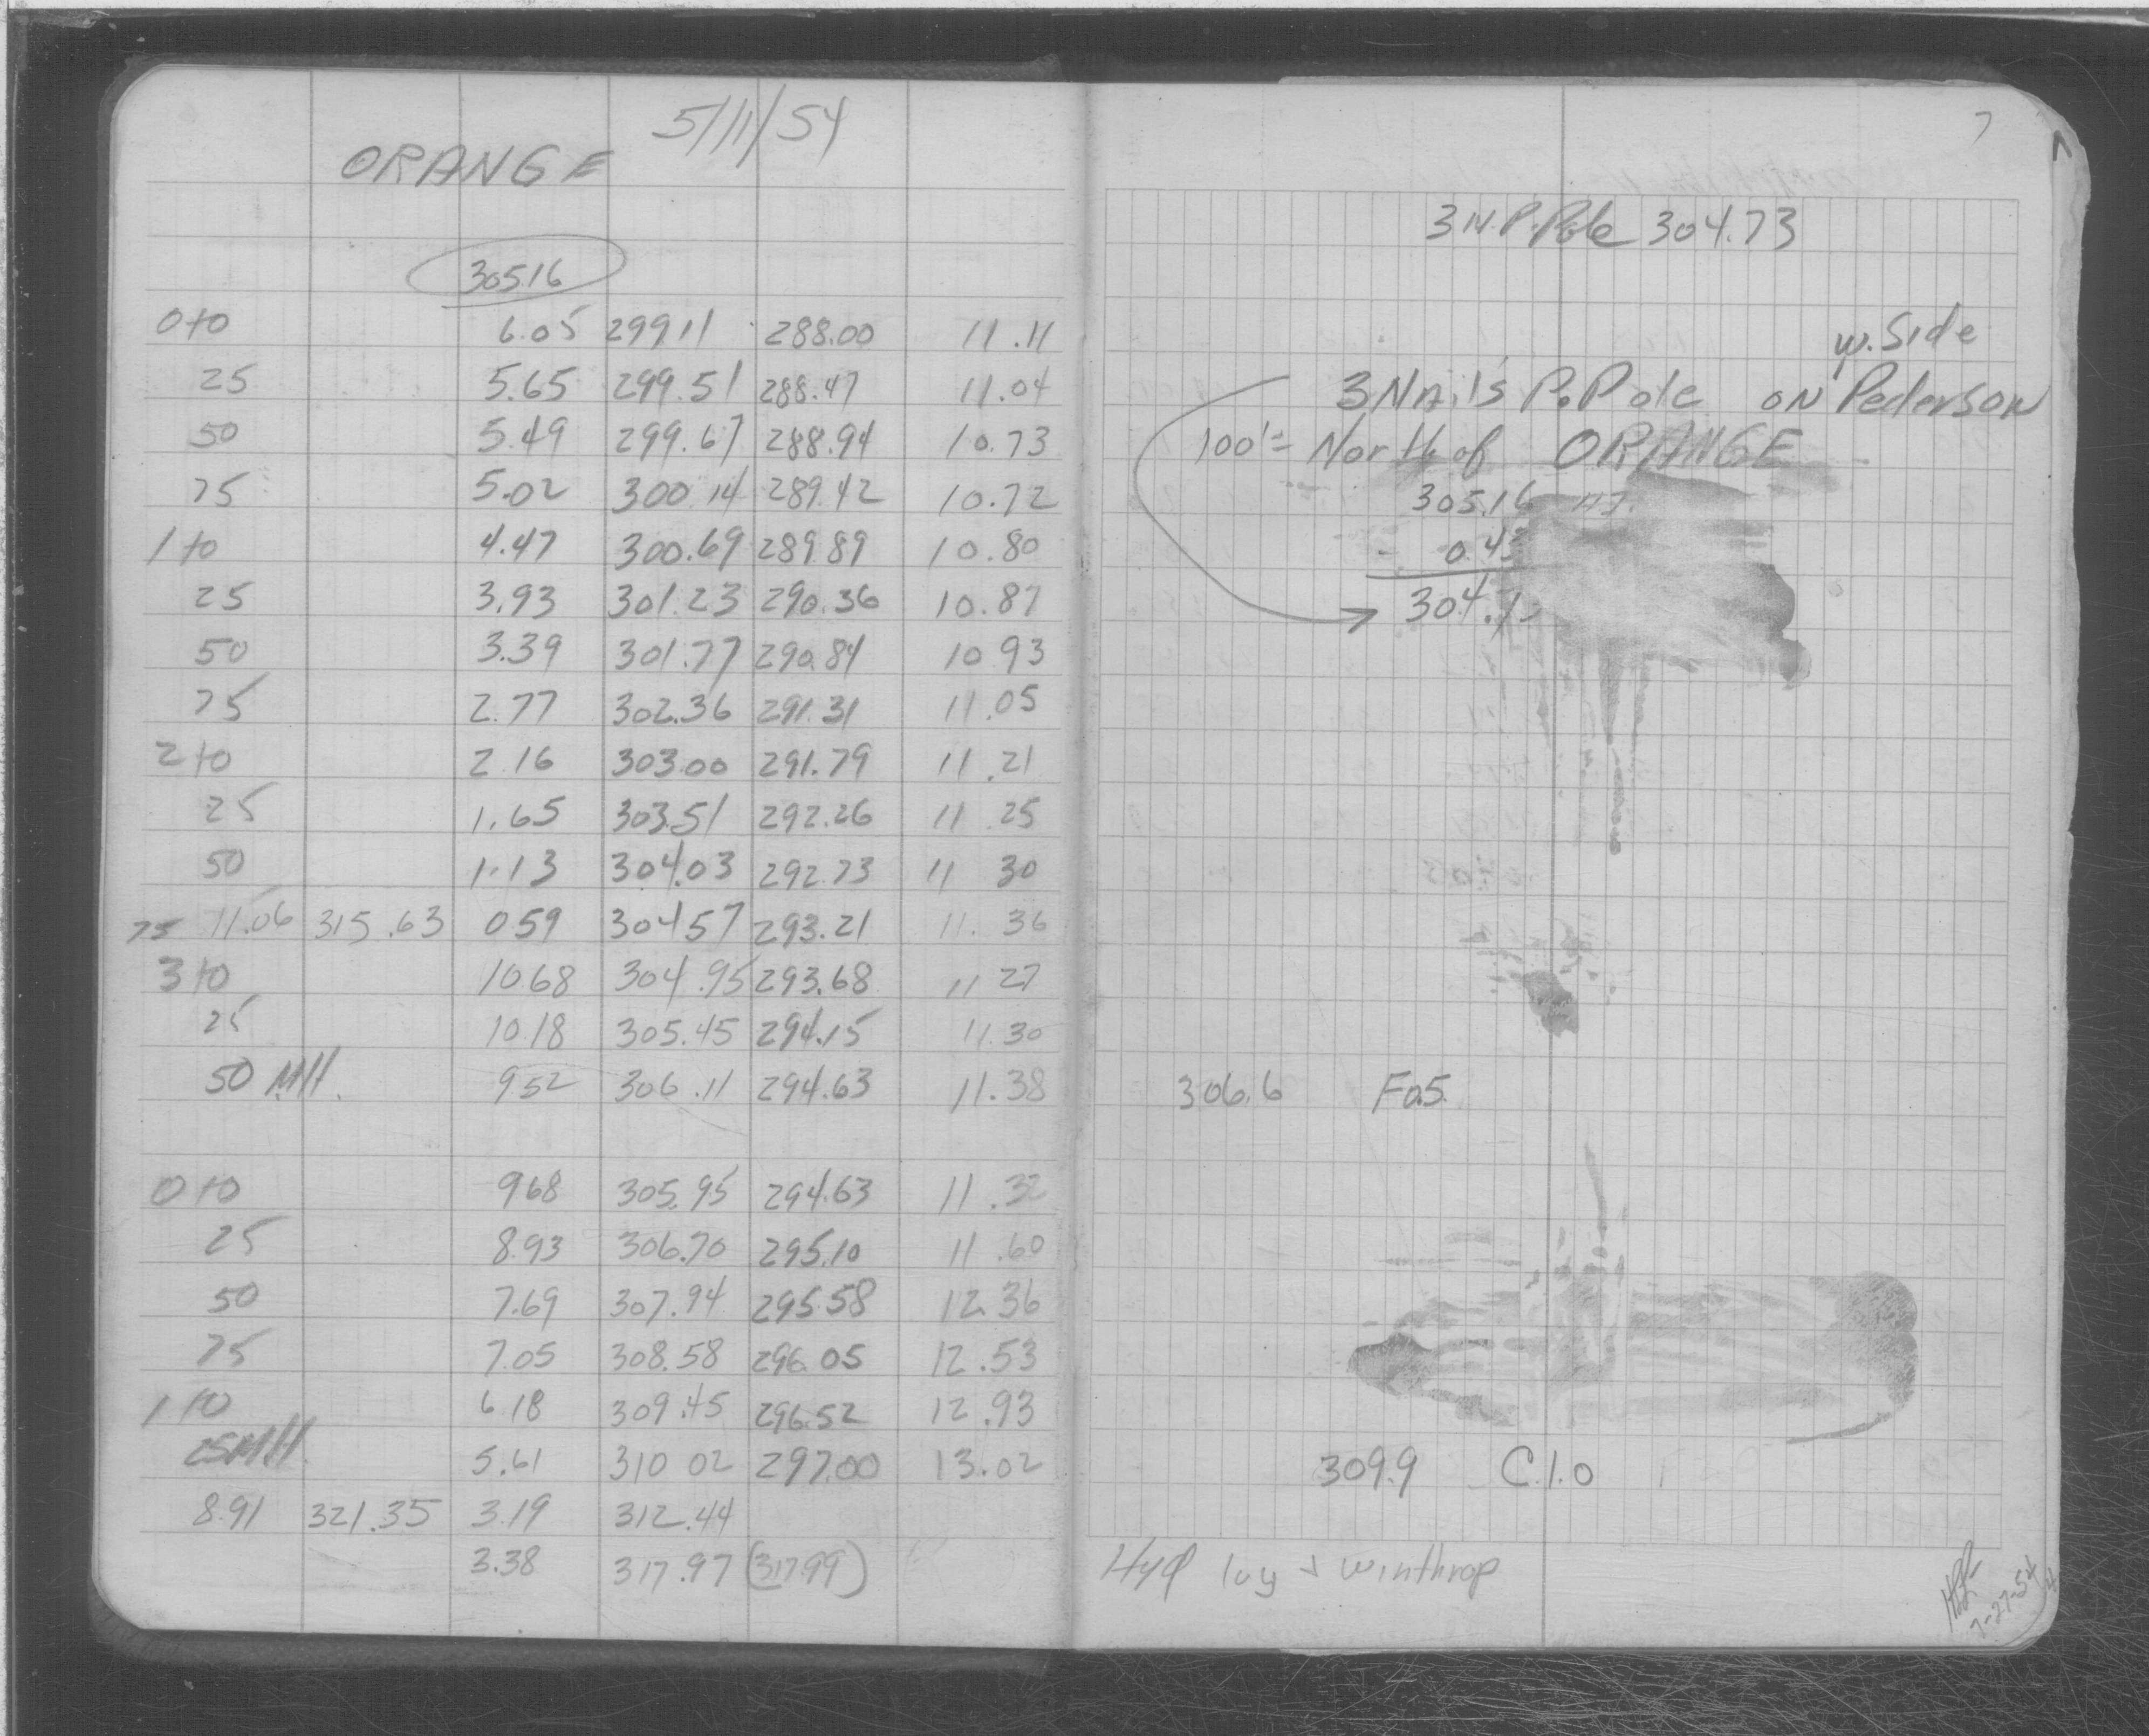 5/11/54
ORANGE
305.16
0+0 6.05 299.11 288.00 11.11
25 5.65 299.51 288.47 11.04
50 5.49 299.67 288.94 10.73
75 5.02 300.14 289.42 10.72
1+0 4.47 300.69 289.89 10.80
25 3.93 301.23 290.36 10.87
50 3.39 301.77 290.84 10.93
75 2.77 302.36 291.31 11.05
2+0 2.16 303.00 291.79 11.21
25 1.65 303.51 292.26 11.25
50 1.13 304.03 292.73 11.30
75 11.06 315.63 0.59 304.57 293.21 11.36
3+0 10.68 304.95 293.68 11.27
25 10.18 305.45 294.15 11.30
50 MH. 9.52 306.11 294.63 11.38
0+0 9.68 305.95 294.63 11.32
25 8.93 306.70 295.10 11.60
50 7.69 307.94 295.58 12.36
75 7.05 308.58 296.05 12.53
1+0 6.18 309.45 296.52 12.93
25 MH. 5.61 310.02 297.00 13.02
8.91 321.35 3.19 312.44
3.38 317.97 (317.99)
7
3 N. P. Pole 304.73
w. Side
3 Nails P. Pole ON Pederson
100'± North of ORANGE
305.16 H.I.
- 0.43
304.7
306.6 F0.5
309.9 C.1.0
Hyd Ivy + Winthrop
7-27-54